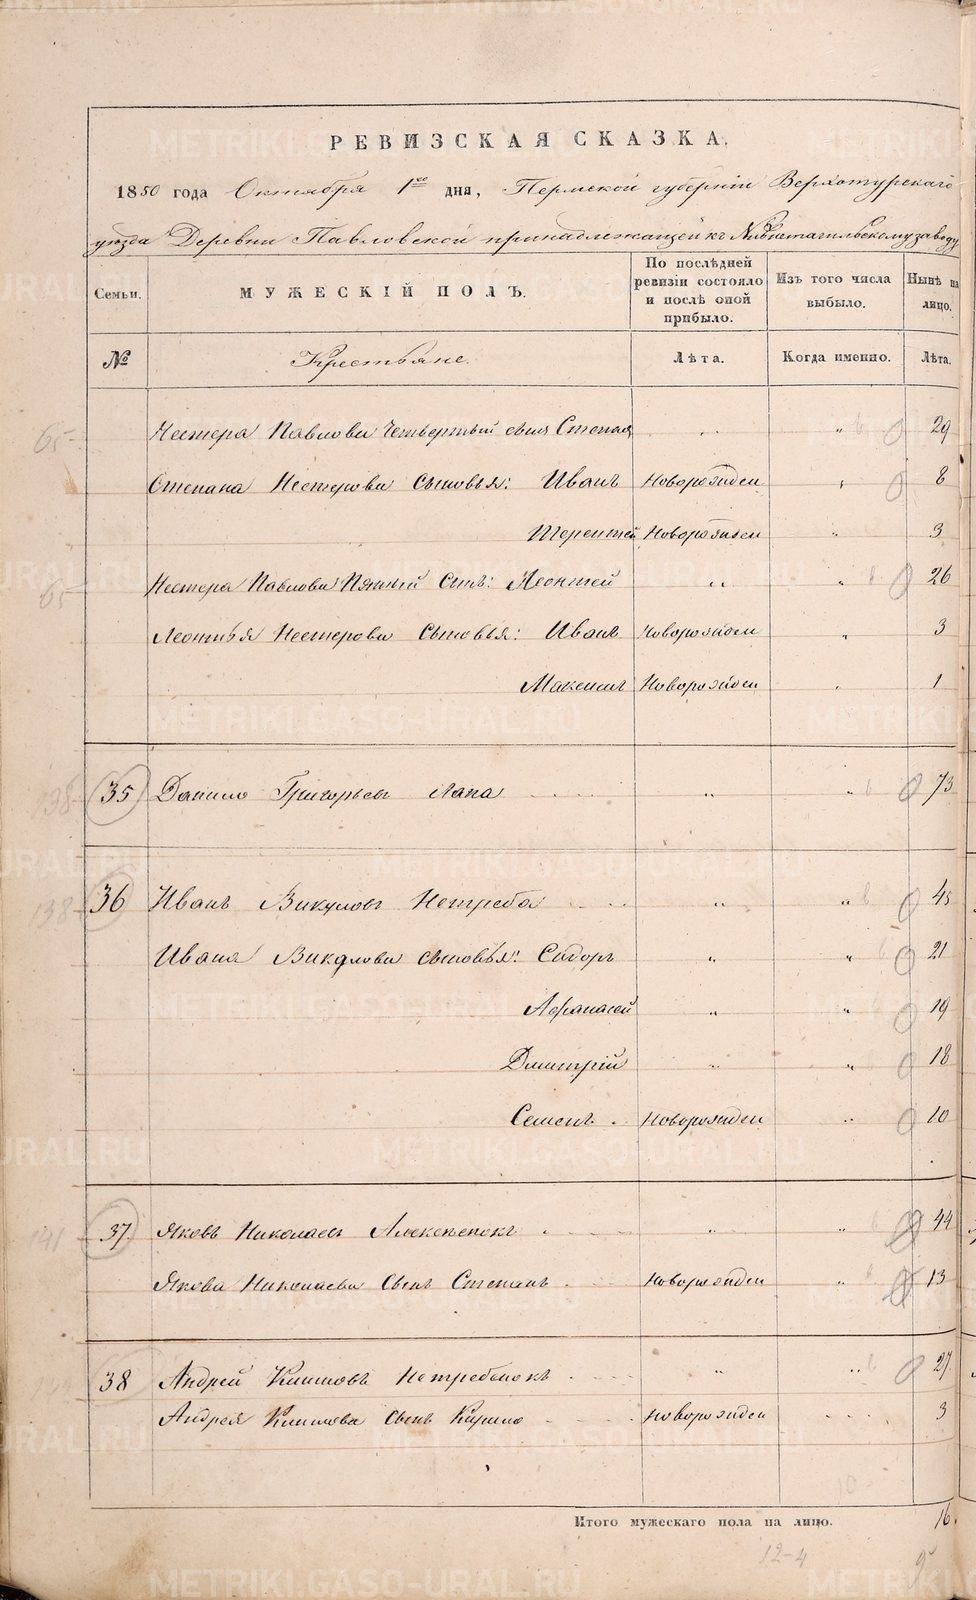 РЕВИЗСКАЯ СКАЗКА.
1850 года Октября 1го дня, Пермской губернии Верхотурскаго
уезда Деревни Павловской принадлежащей къ Нижнетагильскому заводу
Семьи. МУЖЕСКІЙ ПОЛЪ. По послѣдней ревизіи состояло и послѣ оной прибыло. Изъ того числа выбыло. Нынѣ на лицо.
№ Крестьяне. Лѣта. Когда именно. Лѣта.
65 Нестера Павлова Четвертый сынъ Степан „ „ 29
Степана Нестерова сыновья: Иванъ Новорожден „ 8
Терентей Новорожден „ 3
65 Нестера Павлова Пятый Сынъ: Леонтей „ „ 26
Леонтья Нестерова Сыновья: Иванъ Новорожден „ 3
Максимъ Новорожден „ 1
138 35 Данило Григорьевъ Лапа „ „ 73
138 36 Иванъ Викуловъ Нетреба „ „ 45
Ивана Викулова сыновья: Сидоръ „ „ 21
Афанасей „ „ 19
Дмитрій „ „ 18
Семенъ Новорожден „ 10
141 37 Яковъ Николаевъ Алексѣенокъ „ „ 44
Якова Николаева Сынъ Степанъ Новорожден „ 13
38 Андрей Климовъ Нетребенокъ „ „ 27
Андрея Климова Сынъ Кирило Новорожден 3
Итого мужескаго пола на лицо. 16.
12-4
METRIKI.GASO-URAL.RU